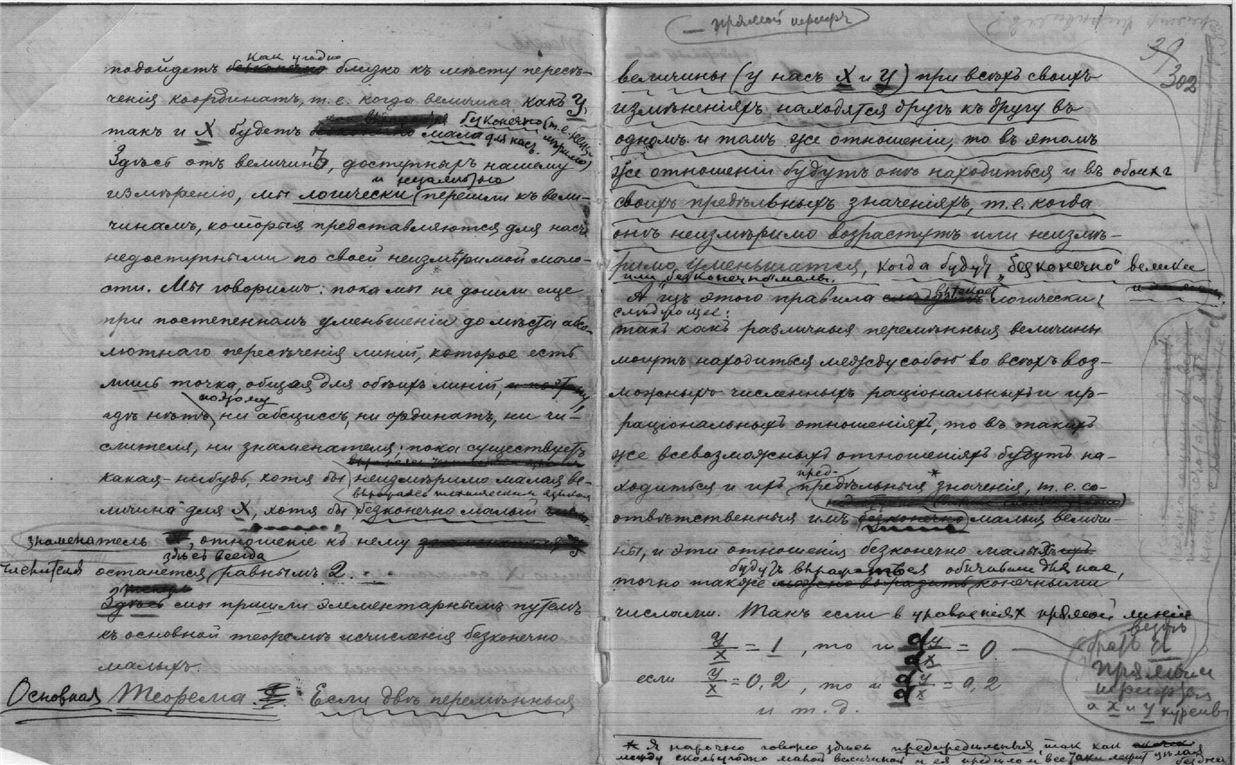 какъ угодно
подойдетъ близко къ мѣсту пересѣ-
ченія координатъ, т. е. когда величина какъ У,
такъ и Х будетъ безконечно мала для насъ.
Здѣсь отъ величинъ, доступныхъ нашему
измѣренію, мы логически и перешли къ вели-
чинамъ, которыя представляются для насъ
недоступными по своей неизмѣримой мало-
сти. Мы говоримъ: пока мы не дошли еще
при постепенномъ уменьшеніи до мѣста абсо-
лютнаго пересѣченія линій, которое есть
лишь точка, общая для обѣихъ линій,
гдѣ нѣтъ поэтому ни абсциссъ, ни ординатъ, ни чи-
слителя, ни знаменателя; пока существуетъ
какая-нибудь, хотя бы неизмѣримо малая ве-
личина для Х, хотя бы безконечно малый
знаменатель, отношеніе къ нему
числителя здѣсь всегда
останется равнымъ 2.
мы пришли элементарнымъ путемъ
къ основной теоремѣ исчисленія безконечно
малыхъ.
Основная Теорема I. Если двѣ перемѣнныя
прямой шрифтъ
39
302
величины (у насъ Х и У) при всѣхъ своихъ
измѣненіяхъ находятся другъ къ другу въ
одномъ и томъ же отношеніи, то въ этомъ
же отношеніи будутъ онѣ находиться и въ обоихъ
своихъ предѣльныхъ значеніяхъ, т. е. когда
онѣ неизмѣримо возрастутъ или неизмѣ-
римо уменьшатся, когда будутъ "безконечно" велики
или "безконечно" малы.
А изъ этого правила вытекаетъ логически
слѣдующее:
такъ какъ различныя перемѣнныя величины
могутъ находиться между собою во всѣхъ воз-
можныхъ численныхъ раціональныхъ и ир-
раціональныхъ отношеніяхъ, то въ такихъ
же всевозможныхъ отношеніяхъ будутъ на-
ходиться и ихъ пред-предѣльныя * значенія, т. е. со-
отвѣтственныя имъ малыя величи-
ны, и эти отношенія безконечно малыхъ
будутъ выражаться обычными для насъ,
точно также конечными
числами. Такъ если в уравненіях прямой линіи
y/x = 1, то и dy/dx = 0
если y/x = 0,2, то и dy/dx = 0,2
и т. д.
вездѣ
брать d
прямым
шрифтом
а x и y курсивъ
* Я нарочно говорю здѣсь предпредѣльныя, так как
между сколь угодно малой величиной и ея предѣлом все таки лежит цѣлая бездна